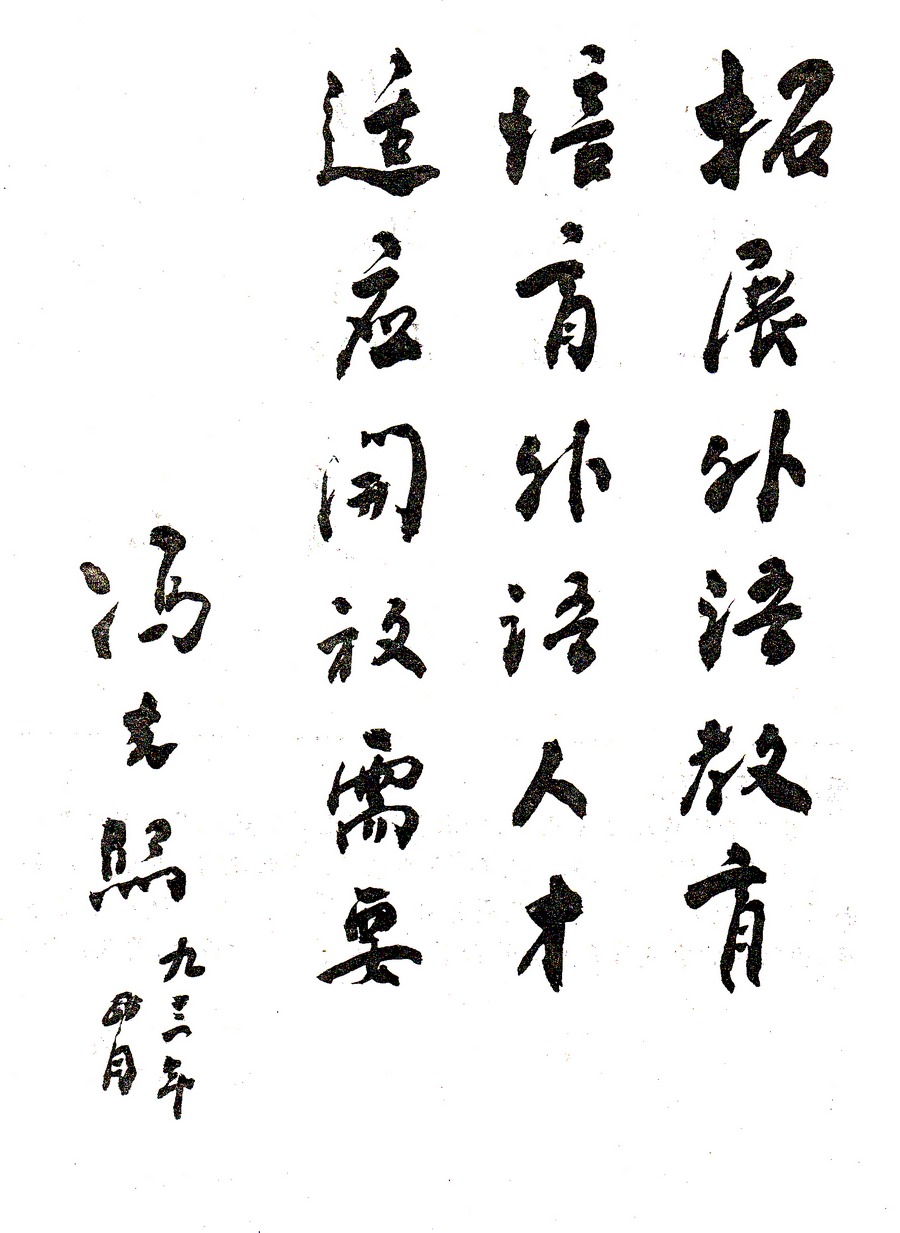 拓展外语教育
培育外语人才
适应開放需要
冯志照
九三年
四月